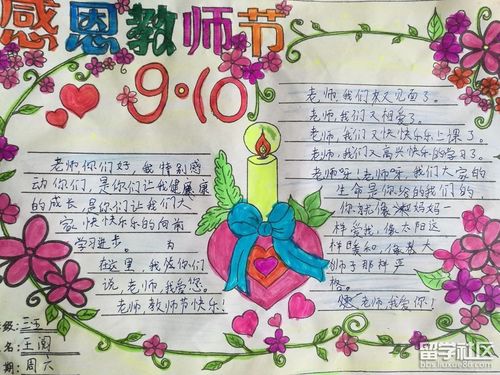 感恩教师节
9·10
老师,你们好,我特别感
动你们,是你们让我健康康
的成长,是你们让我们大
家快快乐乐的向前
学习进步。为
在这里,我给你们
说老师,我爱您。
老师教师节快乐!
老师,我们又见面了。
老师,我们又相爱了。
老师,我们又快快乐乐上课了。
老师,我们又高兴快乐的学习了。
老师呀!老师呀,我们大家的
生命是你给的我们的
你就像 妈妈一
样爱我,像太阳这
样暖和,像
狮子那样严
格。
老师,我爱你!
级:三
名:王阁
期:周六
留学社区
bbs.liuxue86.com